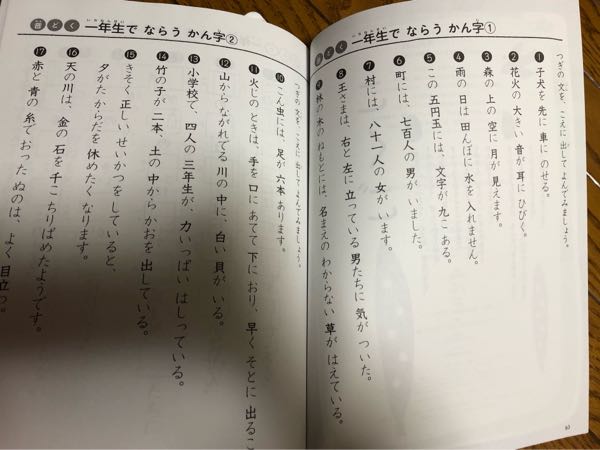 音どく 一年生で ならう かん字①
つぎの 文を、こえに 出して よんでみましょう。
❶ 子犬を 先に 車に のせる。
❷ 花火の 大きい 音が 耳に ひびく。
❸ 森の 上の 空に 月が 見えます。
❹ 雨の 日は 田んぼに 水を 入れません。
❺ この 五円玉には、文字が 九こ ある。
❻ 町には、七百人の 男が いました。
❼ 村には、八十一人の 女が います。
❽ 王さまは、右と 左に 立っている 男たちに 気が ついた。
林の 木の ねもとには、名まえの わからない 草が はえている。
63
音どく 一年生で ならう かん字②
つぎの 文を、こえに 出して よんでみましょう。
❿ こん虫には、足が 六本 あります。
⓫ 火じの ときは、手を 口に あてて 下に おり、早く そとに 出るこ
⓬ 山から ながれてる 川の 中に、白い 貝が いる。
⓭ 小学校で、四人の 三年生が、力いっぱい はしっている。
⓮ 竹の 子が 二本、土の 中から かおを 出している。
⓯ きそく 正しい せいかつを していると、
夕がた からだを 休めたく なります。
⓰ 天の 川は、金の 石を 千こ ちりばめたようです。
⓱ 赤と 青の 糸で おった ぬのは、よく 目立つ。